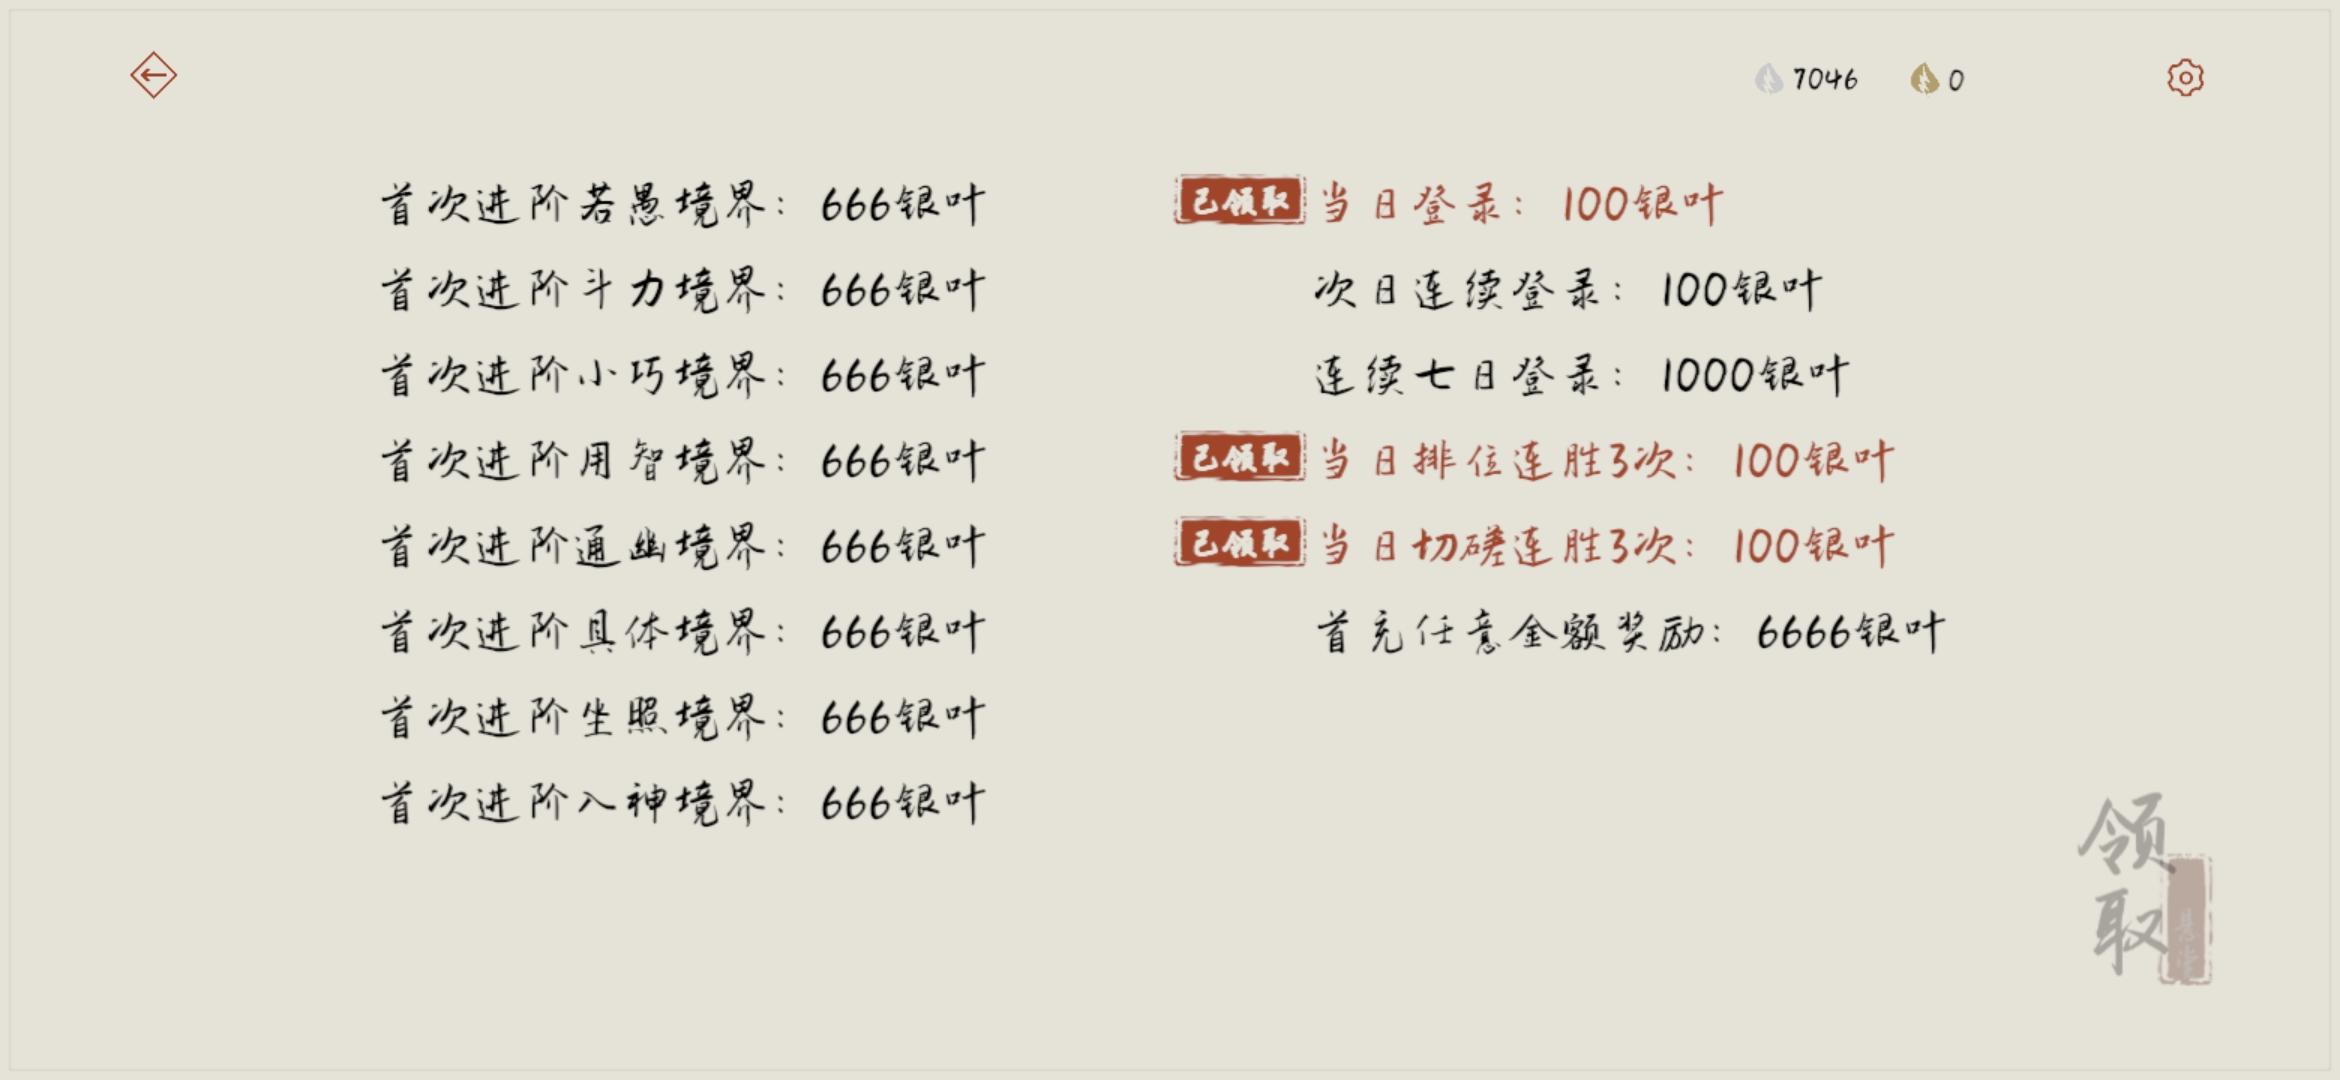 7046
0
首次进阶若愚境界：666银叶
首次进阶斗力境界：666银叶
首次进阶小巧境界：666银叶
首次进阶用智境界：666银叶
首次进阶通幽境界：666银叶
首次进阶具体境界：666银叶
首次进阶坐照境界：666银叶
首次进阶入神境界：666银叶
已领取 当日登录：100银叶
次日连续登录：100银叶
连续七日登录：1000银叶
已领取 当日排位连胜3次：100银叶
已领取 当日切磋连胜3次：100银叶
首充任意金额奖励：6666银叶
领取